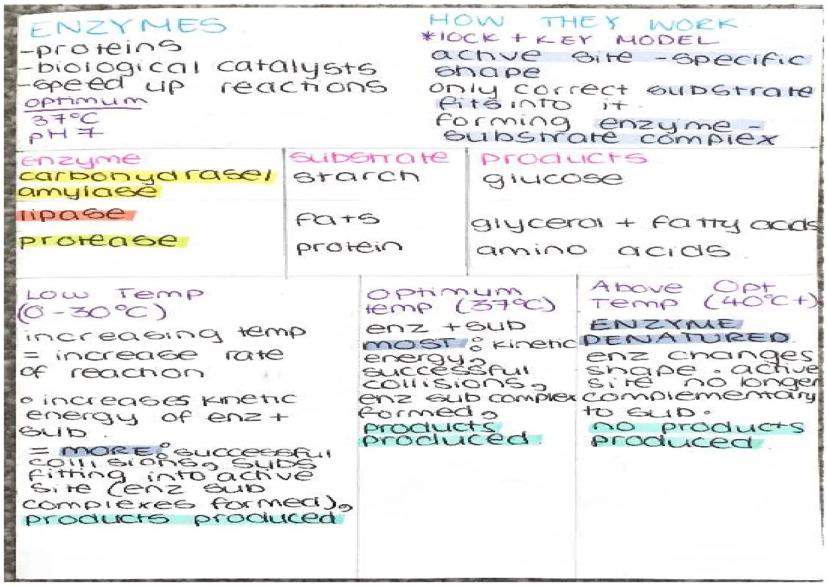 ENZYMES
-proteins
-biological catalysts
-speed up reactions
optimum
37°C
pH 7
HOW THEY WORK
*lOCK + KEY MODEL
active site - specific
shape
only correct substrate
fits into it.
forming enzyme -
substrate complex
enzyme substrate products
carbohydrase/ starch glucose
amylase
lipase fats glycerol + fatty acids
protease protein amino acids
Low Temp
(0-30°C)
increasing temp
= increase rate
of reaction
• increases kinetic
energy of enz +
sub.
= MORE: successful
collisions, subs
fitting into active
site (enz sub
complexes formed),
products produced
optimum
temp (37°C)
enz + sub
MOST: kinetic
energy,
successful
collisions,
enz sub complex
formed,
products
produced.
Above Opt
Temp (40°C+)
ENZYME
DENATURED.
enz changes
shape. active
site no longer
complementary
to sub.
no products
produced.